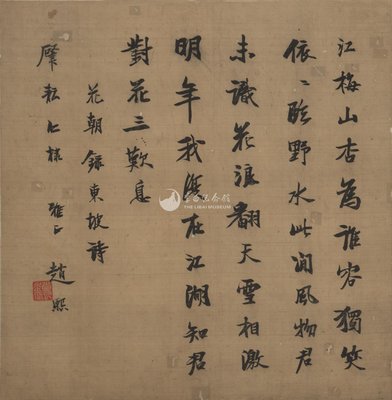 江梅山杏為誰容獨笑
依〻臨野水此間風物君
未識花浪翻天雪相激
明年我復在江湖知君
對花三歎息
花朝錄東坡詩
耘仁棣 雅正 趙熙
THE LIBAI MUSEUM